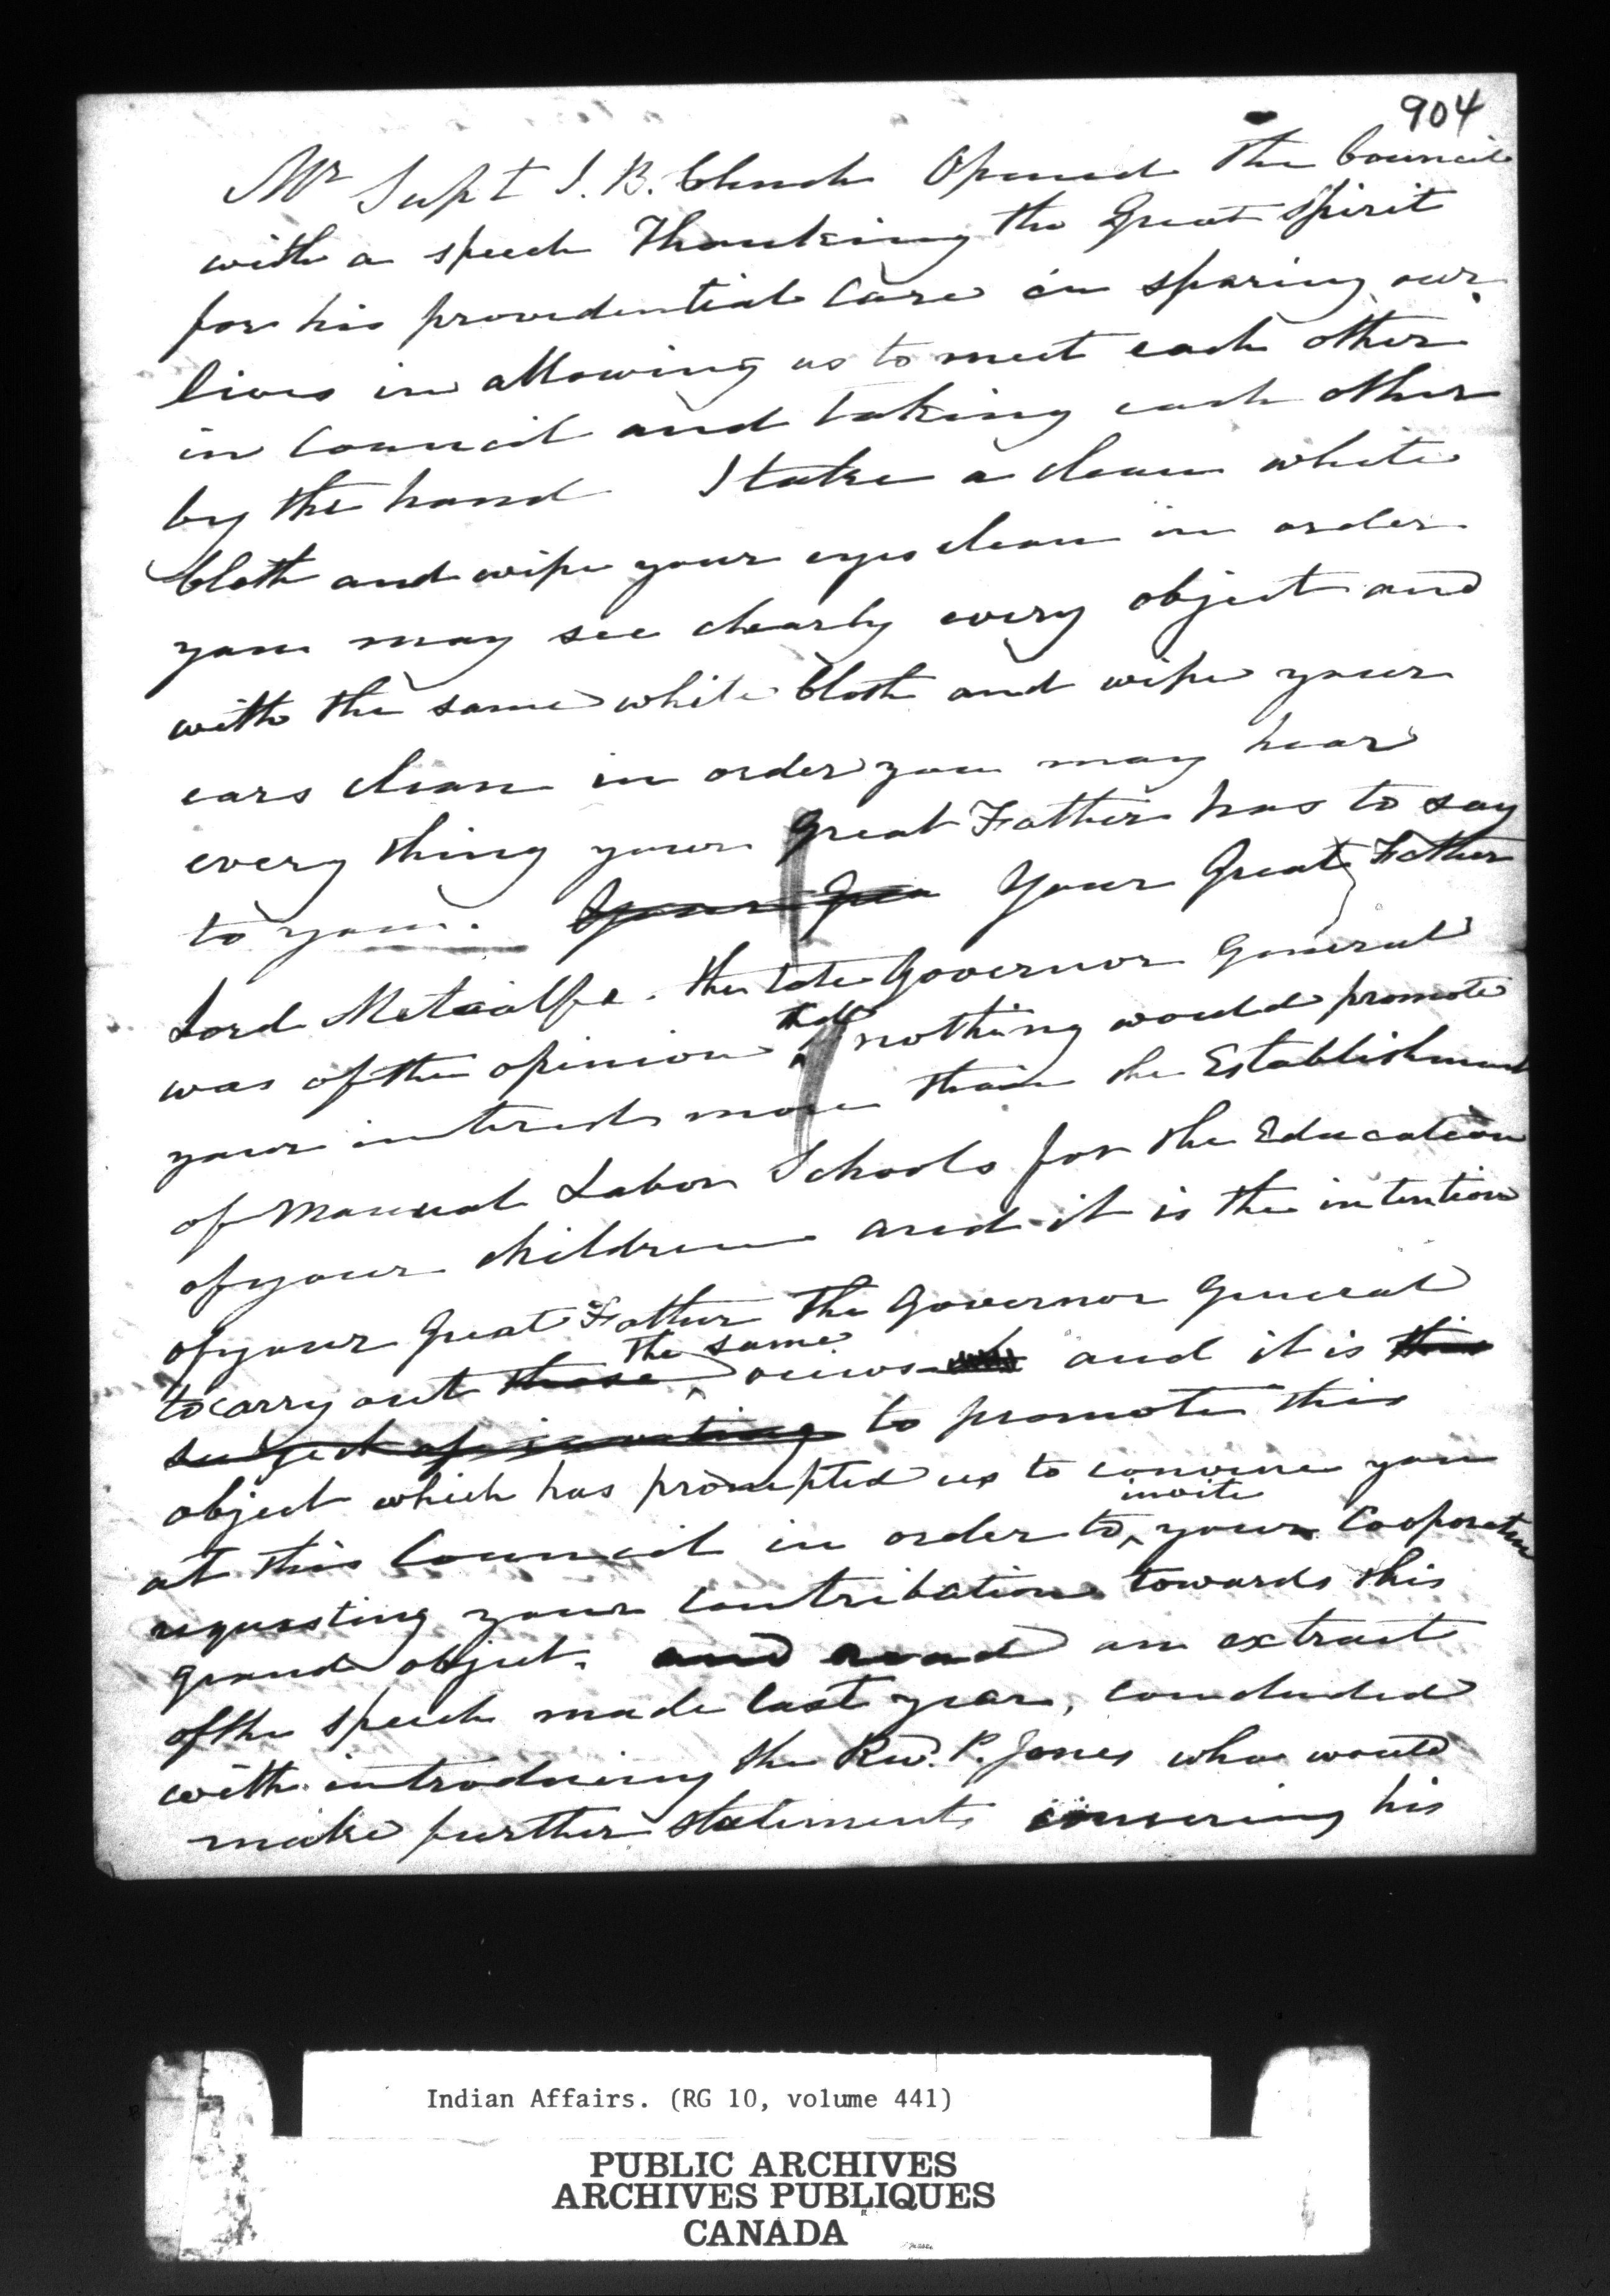 904
Mr Supt J. B. Clench Opened the Council
with a speech Thanking the Great Spirit
for his providential Care in sparing our
lives in allowing us to meet each other
in Council and taking each other
by the hand I take a clean white
Cloth and wipe your eyes clean in order
you may see clearly every object and
with the same white Cloth and wipe your
ears clean in order you may hear
every thing your Great Father has to say
to you. Your Great Father
Lord Metcalfe. the late Governor General
was of the opinion that nothing would promote
your interests more than the Establishment
of Manual Labor Schools for the Education
of your children and it is the intention
of your Great Father The Governor General
to carry out those the same views and it is this
subject of inviting to promote this
object which has prompted us to convene you
at this Council in order to invite your Cooperation
requesting your Contribution towards this
grand object. and read an extract
of the speech made last year, concluded
with introducing the Rev. P. Jones who would
make further statements his
Indian Affairs. (RG 10, volume 441)
PUBLIC ARCHIVES
ARCHIVES PUBLIQUES
CANADA